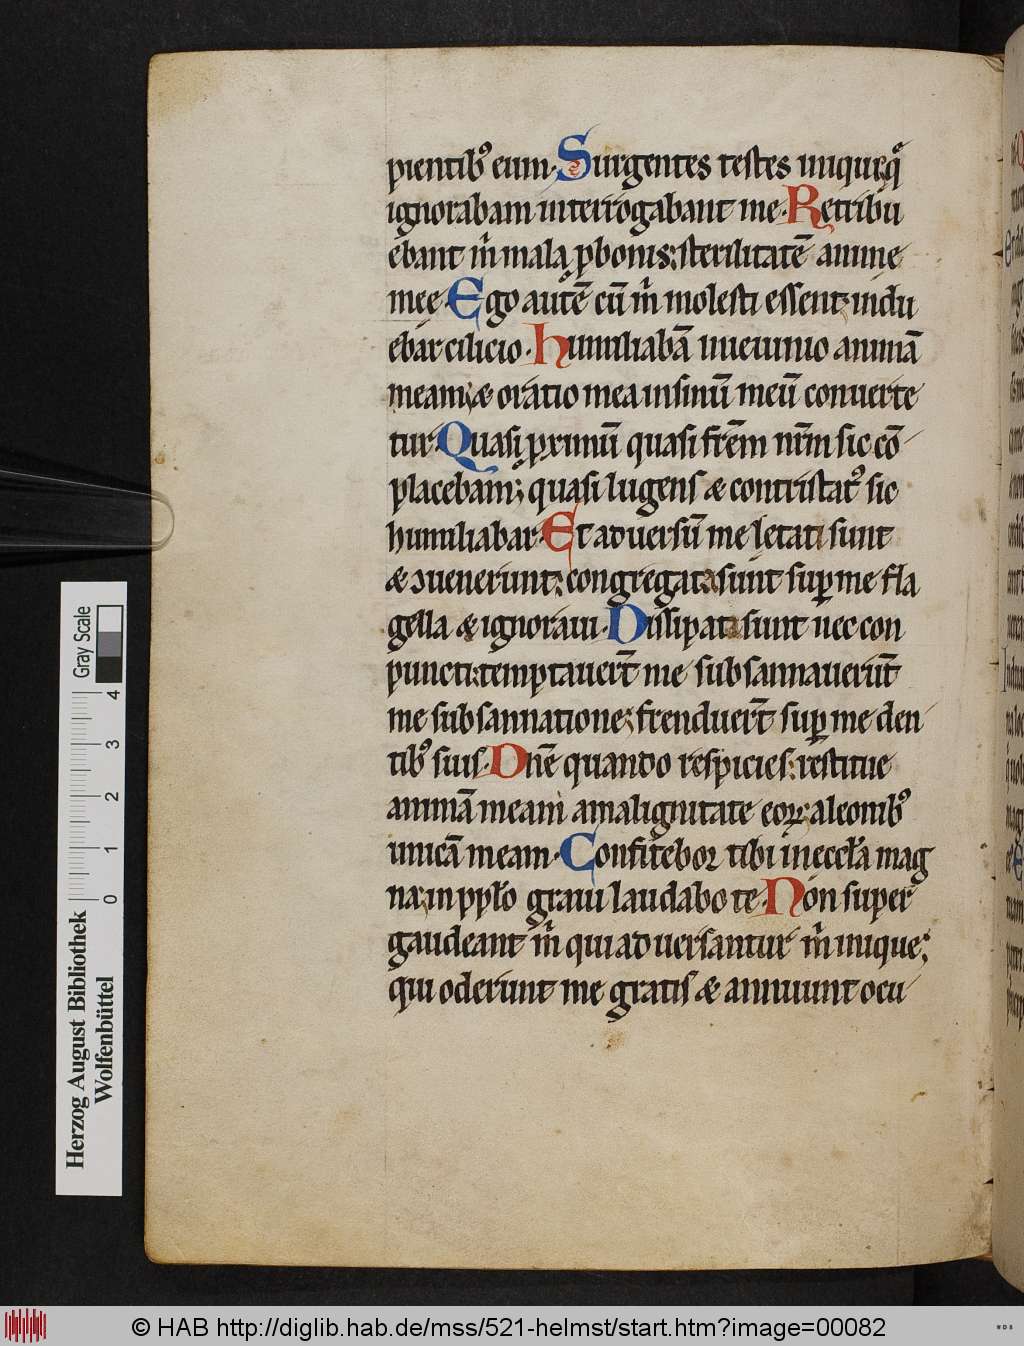 pientib᷒ eum· Surgentes testes iniqui: q̄
ignorabam interrogabant me· Retribu
ebant m̄ mala ꝓ bonis: sterilitatē anime
mee· Ego autē cū m̄ molesti essent: indu
ebar cilicio· humiliabā in ieiunio animā
meam: & oratio mea in sinū meū conuerte
tur· Quasi proximū quasi frēm nrm̄ sic cō
placebam; quasi lugens & contristat᷒ sic
humiliabar· Et aduersū me letati sunt
& ɔuenerunt: congregata sunt suꝑ me fla
gella & ignoraui· Dissipati sunt nec con
puncti: temptauerт̄ me subsannauerūt
me subsannatione: frenduerт̄ suꝑ me den
tib᷒ suis· Dn̄e quando respicies: restitue
animā meam a malignitate eoꝝ: a leonib᷒
unicā meam· Confitebor tibi in eccła mag
na: in ppło graui laudabo te· Non super
gaudeant m̄ qui aduersantur m̄ inique:
qui oderunt me gratis & annuunt ocu
Herzog August Bibliothek
Wolfenbüttel
Gray Scale
0 1 2 3 4
© HAB http://diglib.hab.de/mss/521-helmst/start.htm?image=00082